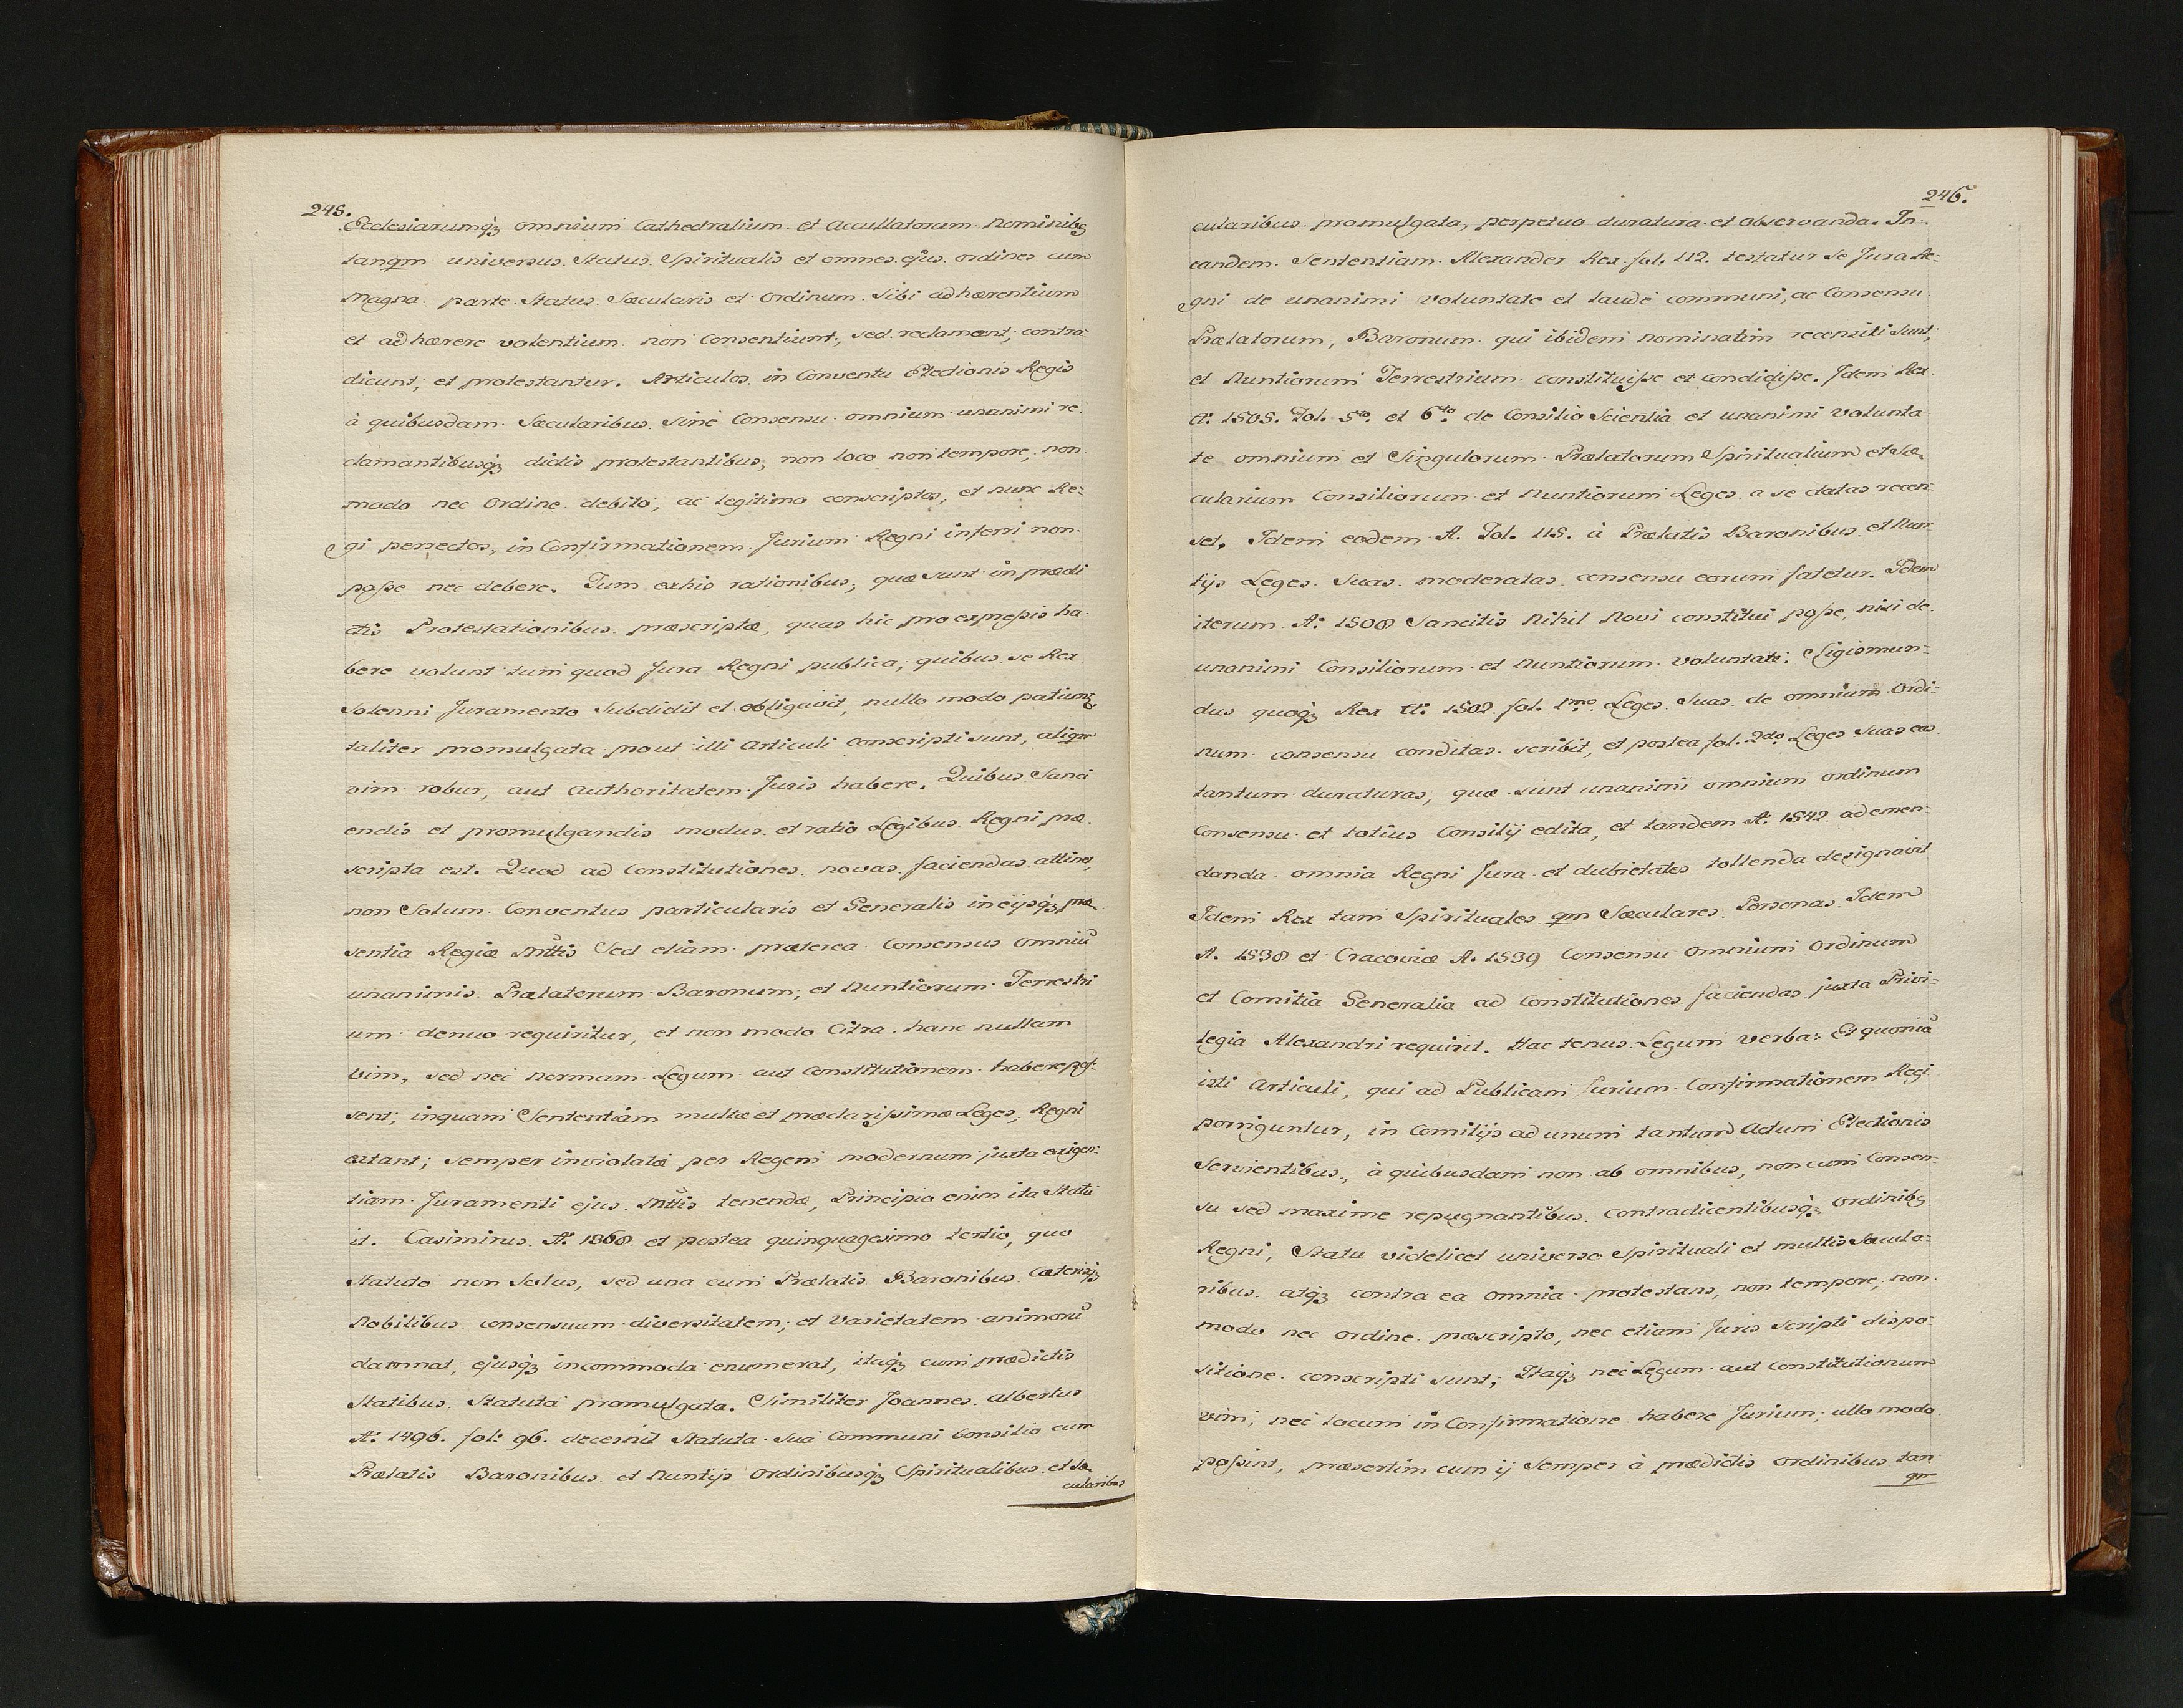 245.
Ecclesiarumq́ꝫ omnium Cathedralium et Accullatorum Nominibꝫ
tanqm universus Status Spiritualis et omnes ejus ordines cum
Magna parte Status Sæcularis et Ordinum Sibi adhærentium
et adhærere volentium non Consentiunt, sed reclamant; contra-
dicunt; et protestantur. Articulos in Conventu Electionis Regis
à quibusdam Sæcularibus Sinè Consensu omnium unanimi re-
clamantibusq́ꝫ dictis protestantibus, non loco non tempore, non
modo nec Ordine debito, ac legitimo conscriptos, et nunc Re-
gi perrectos, in Confirmationem Jurium Regni inferri non
posse nec debere. Tum ex his rationibus, quæ sunt in prædi
ctis Protestationibus præscriptæ, quas hic pro expressis ha-
bere volunt tum quod Jura Regni publica, quibus se Rex
Solenni Juramento Subdidit et obligavit, nullo modo patiuntꝫ
taliter promulgata prout illi Articuli conscripti sunt, aliqm
vim robur, aut Authoritatem Juris habere. Quibus Sanci
endis et promulgandis modus et ratio Legibus Regni præ-
scripta est. Quod ad Constitutiones novas faciendas attinet,
non Solum Conventus particularis et Generalis in eijsq́ꝫ præ-
sentia Regiæ Mttis Sed etiam præterea Consensus omniū
unanimis Prælatorum Baronum, et Nuntiorum Terrestri
um denuo requiritur, et non modo Citra hanc nullam
Vim, sed nec Normam Legum aut Constitutionem habere pos-
sent, inquam Sententiam multæ et præclarissimæ Leges, Regni
extant; semper inviolatæ per Regem modernum juxta exigen-
tiam Juramenti ejus Mttis tenendæ, Principio enim ita Statu
it. Casimirus Aº 1368 et postea quinquagesimo tertio, quo
Statuto non Solus, sed una cum Prælatis Baronibus Cæterisq́ꝫ
Nobilibus consensuum diversitatem, et Varietatem animorū
damnat, ejusq́ꝫ incommoda enumerat, itaq́ꝫ cum prædictis
Statibus Statuta promulgata. Similiter Joannes Albertus
Aº 1496. fol: 96. decernit Statuta Sua Communi Consilio cum
Prælatis Baronibus et Nuntijs Ordinibusq́ꝫ Spiritualibus et Sæ-
cularibus
246.
cularibus promulgata, perpetuo duratura et Observanda. In
eandem Sententiam Alexander Rex fol. 112. testatur Se Jura Re-
gni de unanimi Voluntate et laude communi, ac Consensu
Prælatorum, Baronum qui ibidem nominatim recensiti sunt;
et Nuntiorum Terrestrium constituisse et condidisse. Idem Rex
Aº 1505. Fol. 5to. et 6to. de Consilio Scientia et unanimi volunta
te omnium et Singulorum Prælatorum Spiritualium et Sæ-
cularium Consiliorum et Nuntiorum Leges a se datas recen-
set. Idem eodem A. Fol. 115. à Prælatis Baronibus et Nun
tijs Leges Suas moderatas consensu eorum fatetur. Idem
iterum Aº 1508 Sancitis Nihil Novi constitui posse, nisi de
unanimi Consiliorum et Nuntiorum voluntate. Sigismun-
dus quoq́ꝫ Rex Aº 1502. fol. 1mo. Leges Suas de omnium Ordi-
num consensu conditas scribit, et postea fol. 2do Leges Suas eas
tantum duraturas, quæ sunt unanimi omnium ordinum
Consensu et totius Consilij edita, et tandem Aº 1542 ad emen-
danda omnia Regni Jura et dubietates tollenda designavit
Idem Rex tam Spirituales qm Sæculares Personas. Idem
A. 1538 et Cracoviæ A. 1539 Consensu Omnium Ordinum
et Comitia Generalia ad Constitutiones faciendas juxta Privi-
legia Alexandri requirit. Hac tenus Legum verba: Et quoniā
isti Articuli, qui ad Publicam Jurium Confirmationem Regi
porriguntur, in Comitijs ad unum tantum Actum Electionis
Servientibus, à quibusdam non ab omnibus, non cum Consen-
su sed maxime repugnantibus Contradicentibusq́ꝫ Ordinibꝫ
Regni, Statu videlicet universo Spirituali et multis Sæcula-
ribus atq́ꝫ contra ea Omnia protestans, non tempore, non
modo nec Ordine præscripto, nec etiam Juris Scripti dispo-
sitione conscripti sunt; Itaq́ꝫ nec Legum aut Constitutionum
vim, nec locum in Confirmatione habere Jurium, ullo modo
possint, præsertim cum ij Semper à prædictis ordinibus tan
qm